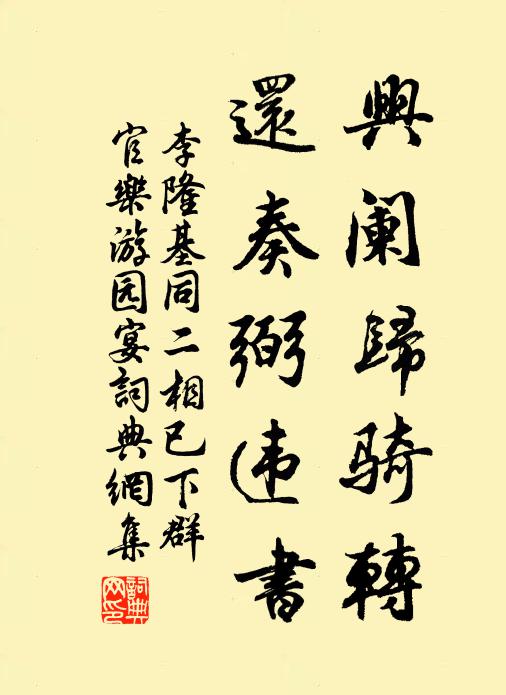 興阑歸騎轉
還奏弼违書
李隆基同二相已下群
官樂游园宴詞典網集
詞典网印